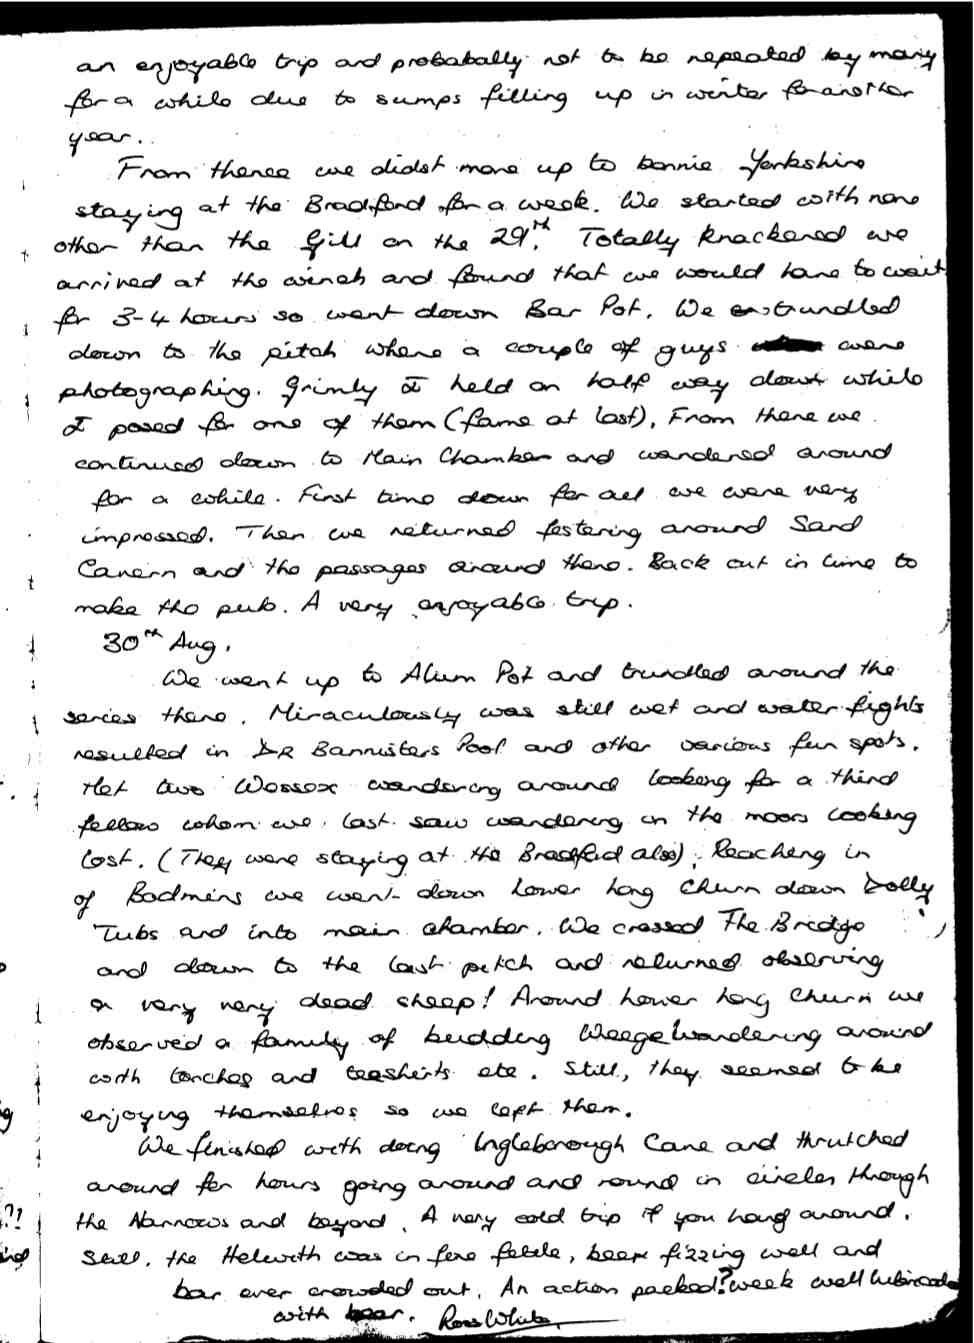 an enjoyable trip and probabally not to be repeated by many
for a while due to sumps filling up in winter for another
year.
From thence we didst move up to bonnie Yorkshire
staying at the Bradford for a week. We started with none
other than the Gill on the 29th. Totally knackered we
arrived at the winch and found that we would have to wait
for 3-4 hours so went down Bar Pot. We trundled
down to the pitch where a couple of guys were
photographing. Grimly I held on half way down while
I posed for one of them (fame at last). From there we
continued down to Main Chamber and wandered around
for a while. First time down for all we were very
impressed. Then we returned festering around Sand
Cavern and the passages around there. Back out in time to
make the pub. A very enjoyable trip.
30th Aug.
We went up to Alum Pot and trundled around the
series there. Miraculously was still wet and water fights
resulted in DR Bannisters Pool and other various fun spots.
Met two Wessex wandering around looking for a third
fellow whom we last saw wandering on the moors looking
lost. (They were staying at the Bradford also). Reaching in
of we went down Lower Long Churn down Dolly
Tubs and into main chamber. We crossed The Bridge
and down to the last pitch and returned observing
a very very dead sheep! Around Lower Long Churn we
observed a family of budding wandering around
with torches and teeshirts etc. Still, they seemed to be
enjoying themselves so we left them.
We finished with doing Ingleborough Cave and thrutched
around for hours going around and round in circles through
the Narrows and beyond. A very cold trip if you hang around.
Still, the Helwith was in fine fettle, beer fizzing well and
bar ever crowded out. An action packed? week well lubricated
with beer. Ross White